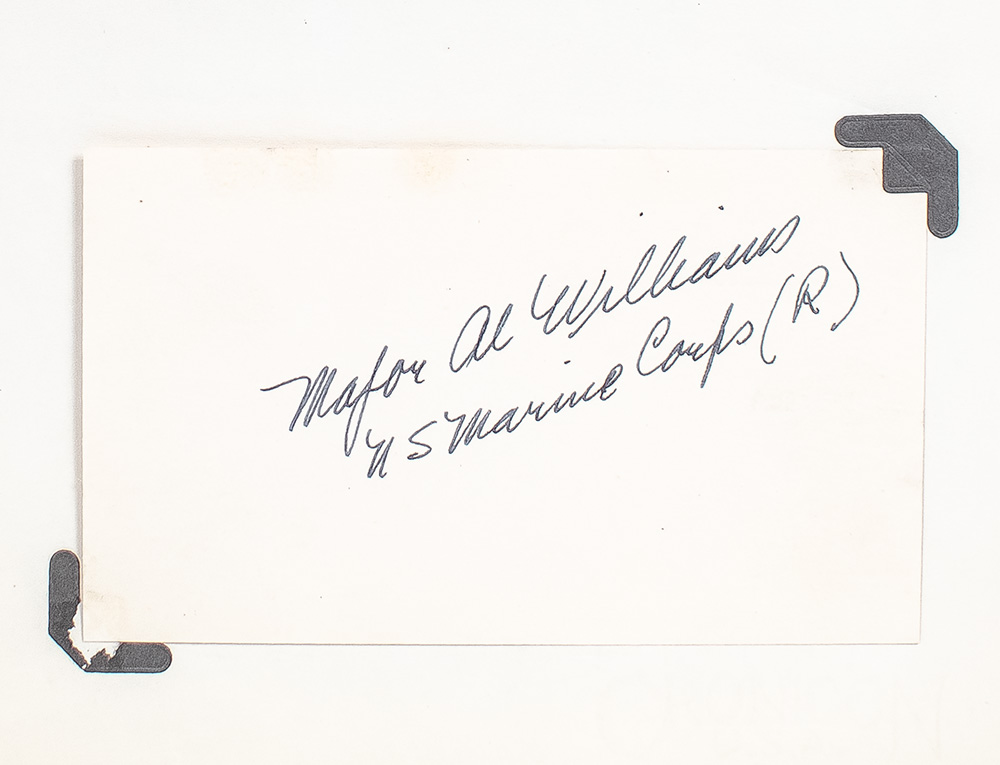 Major Al Williams
US Marine Corps (R)